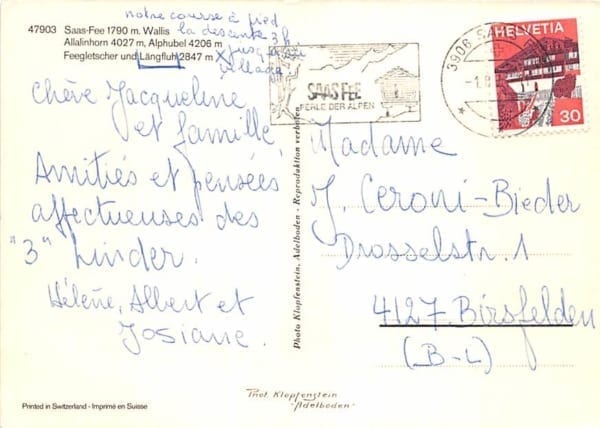 47903 Saas-Fee 1790 m. Wallis
Allalinhorn 4027 m, Alphubel 4206 m
Feegletscher und Längfluh 2847 m
notre course à pied
la descente 3h.
jusqu'au
village
Chère Jacqueline
et famille
Amitiés et pensées
affectueuses des
"3" Linder.
Hélène, Albert et
Josiane.
Photo Klopfenstein, Adelboden - Reproduktion verboten
SAAS FEE
PERLE DER ALPEN
3906 SAAS
HELVETIA
30
Madame
J. Ceroni-Bieder
Drosselstr. 1
4127 Birsfelden
(B-L)
Phot. Klopfenstein
-Adelboden-
Printed in Switzerland - Imprimé en Suisse